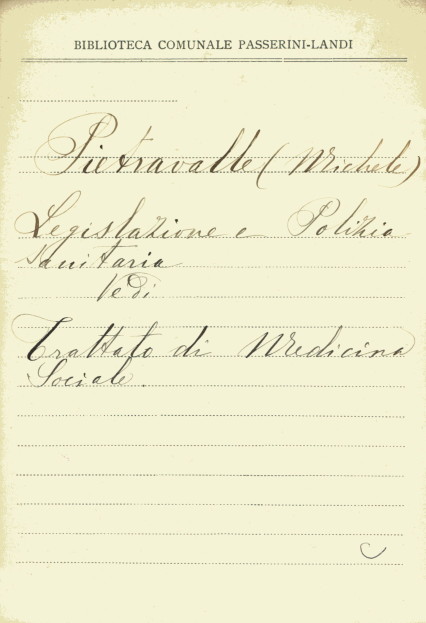 BIBLIOTECA COMUNALE PASSERINI-LANDI
Pietravalle (Michele)
Legislazione e Polizia
Sanitaria
Vedi
Trattato di Medicina
Sociale.